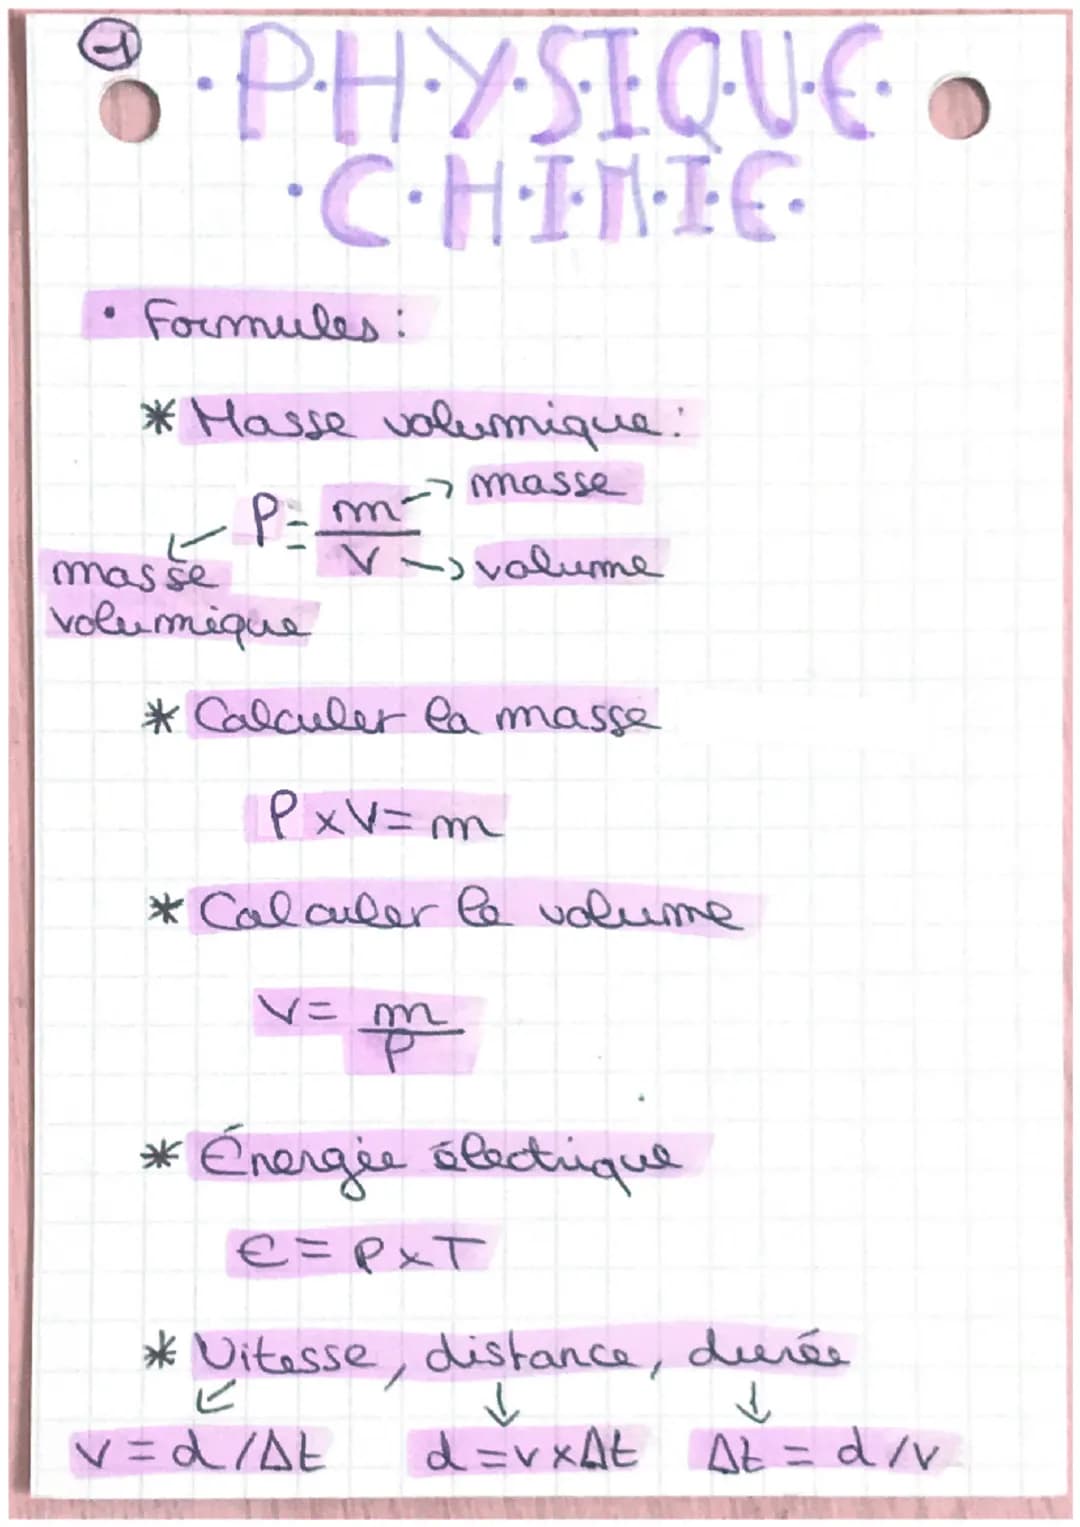 1
·P·H·Y·S·I·Q·U·E·
·C·H·I·M·I·E·
• Formules :
* Masse volumique :
P = m/V
masse
volume
masse
volumique
* Calculer la masse
P x V = m
* Calculer le volume
V = m/P
* Énergie électrique
E = P x T
* Vitesse, distance, durée
v = d / Δt d = v x Δt Δt = d / v